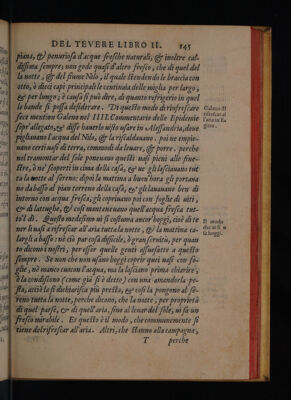 DEL TEVERE LIBRO II. 145
piana, & penuriosa d'acque fresche naturali, & inoltre cal-
dissima sempre; non gode quasi d'altro fresco, che di quel del
la notte, & del fiume Nilo, il quale stendendo le braccia con
otto, ò dieci capi principali le centinaia delle miglia per largo,
& per lungo; è causa si può dire, di quanto refrigerio in quel
le bande si possa desiderare. Di questo modo di rinfrescare
fece mention Galeno nel IIII. Commentario delle Epidemie
sopr'allegato, & disse hauerlo uisto usare in Alessandria, doue
pogliauano l'acqua del Nilo, & la riscaldauano. poi ne empie-
uano certi uasi di terra, commodi da leuare, & porre. perche
nel tramontar del sole poneuano questi uasi pieni alle fine-
stre, ò ne' scoperti in cima della casa, & ue gli lasciauano tut-
ta la notte al sereno: dipoi la mattina a buon'hora gli portaua
no da basso al pian terreno della casa, & gli lauauano ben' di
intorno con acqua fresca, gli copriuano poi con foglie di uiti,
& di lattughe, & così manteneuano quell'acqua fresca tut-
to'l dì. Questo medesimo ui si costuma ancor hoggi, cioè di te
ner li uasi a rifrescar all'aria tutta la notte, & la mattina ca-
largli a basso: nè ciò par cosa difficile, ò gran seruitio, per quan
to dicono i nostri, per esser quelle genti assuefatte a questo
sempre. Se non che non usano hoggi coprir quei uasi con fo-
glie, nè manco cuocon l'acqua, ma la lasciano prima chiarire;
ò la condiscono (come già si è detto) con una amandola pe-
sta, acciò la si dichiarisca più presto, & così la pongono al se-
reno tutta la notte, perche dicono, che la notte, per proprietà
di quel paese, & di quell'aria, fino al leuar del sole, ui fa un
fresco mirabile. Et questo è il modo, che communemente si
tiene del rifrescar all'aria. Altri, che stanno alla campagna,
T perche
Galeno
rifrescar al
gitta.
Il modo
che
fa hoggi.